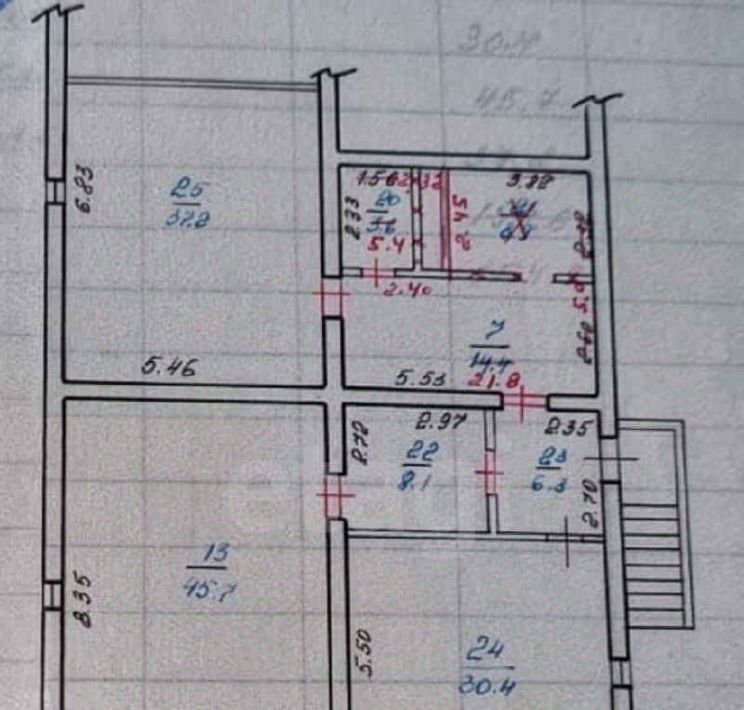 30.4
45.7
6.83
25
37.2
1.56
2.32
3.72
20
3.6
2.33
5.4
2.45
2.40
5.0
7
14.4
21.8
2.60
5.46
5.53
2.97
2.35
2.72
22
8.1
23
6.3
2.70
13
45.7
8.35
5.50
24
30.4